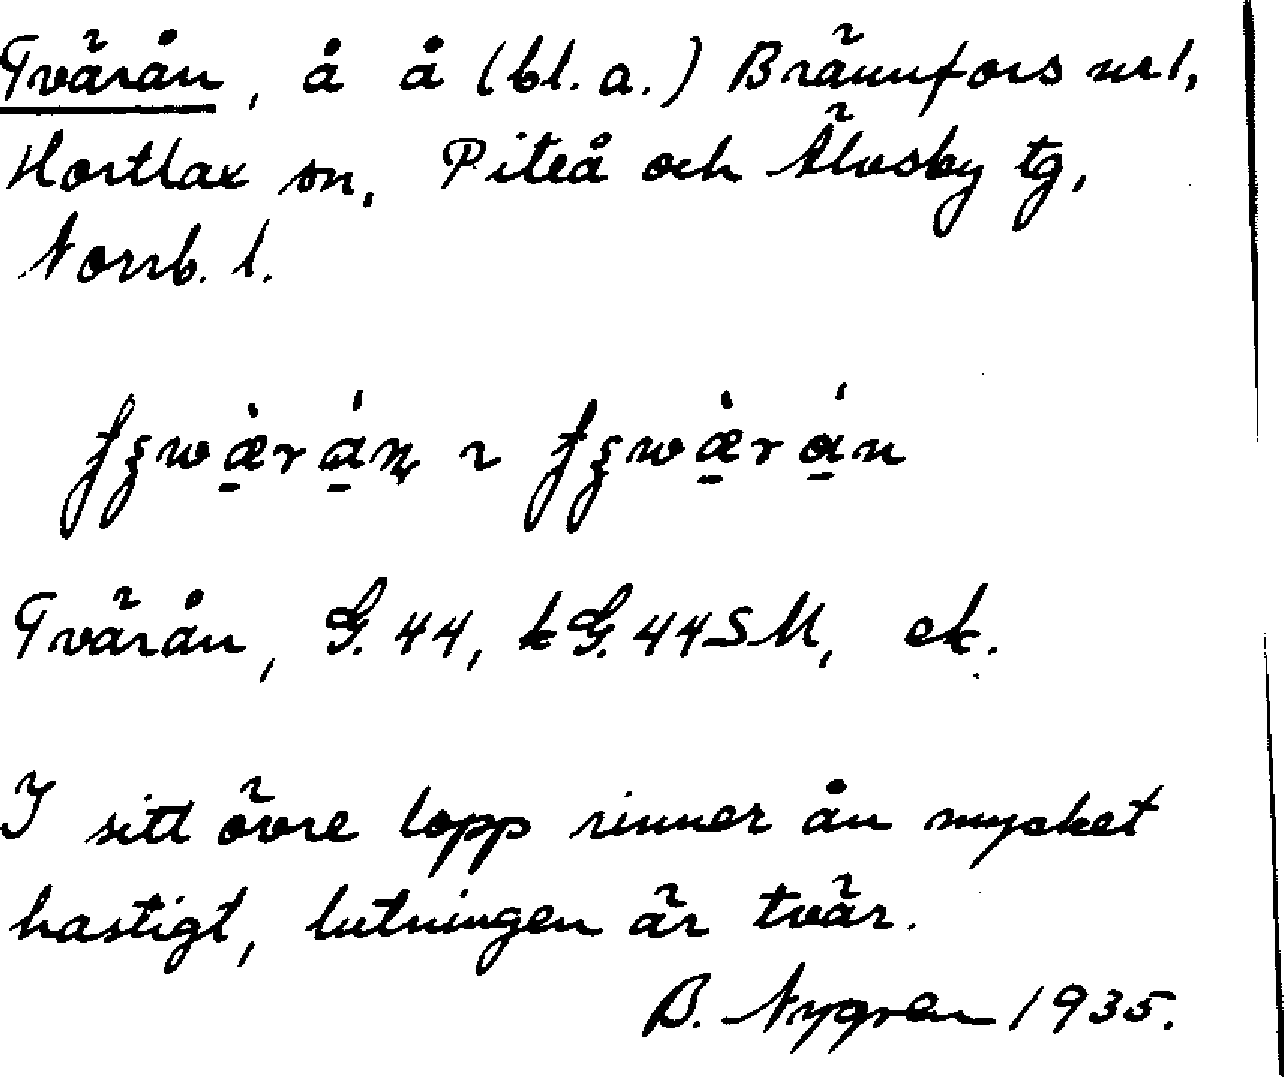 Tvärån, å å (bl. a.) Brännfors nr 1,
Hortlax sn, Piteå och Älvsby tg,
Norrb. l.
Tvärån, G. 44, kG. 44 SM, ek.
I sitt övre lopp rinner ån mycket
hastigt, lutningen är tvär.
B. Nygren 1935.